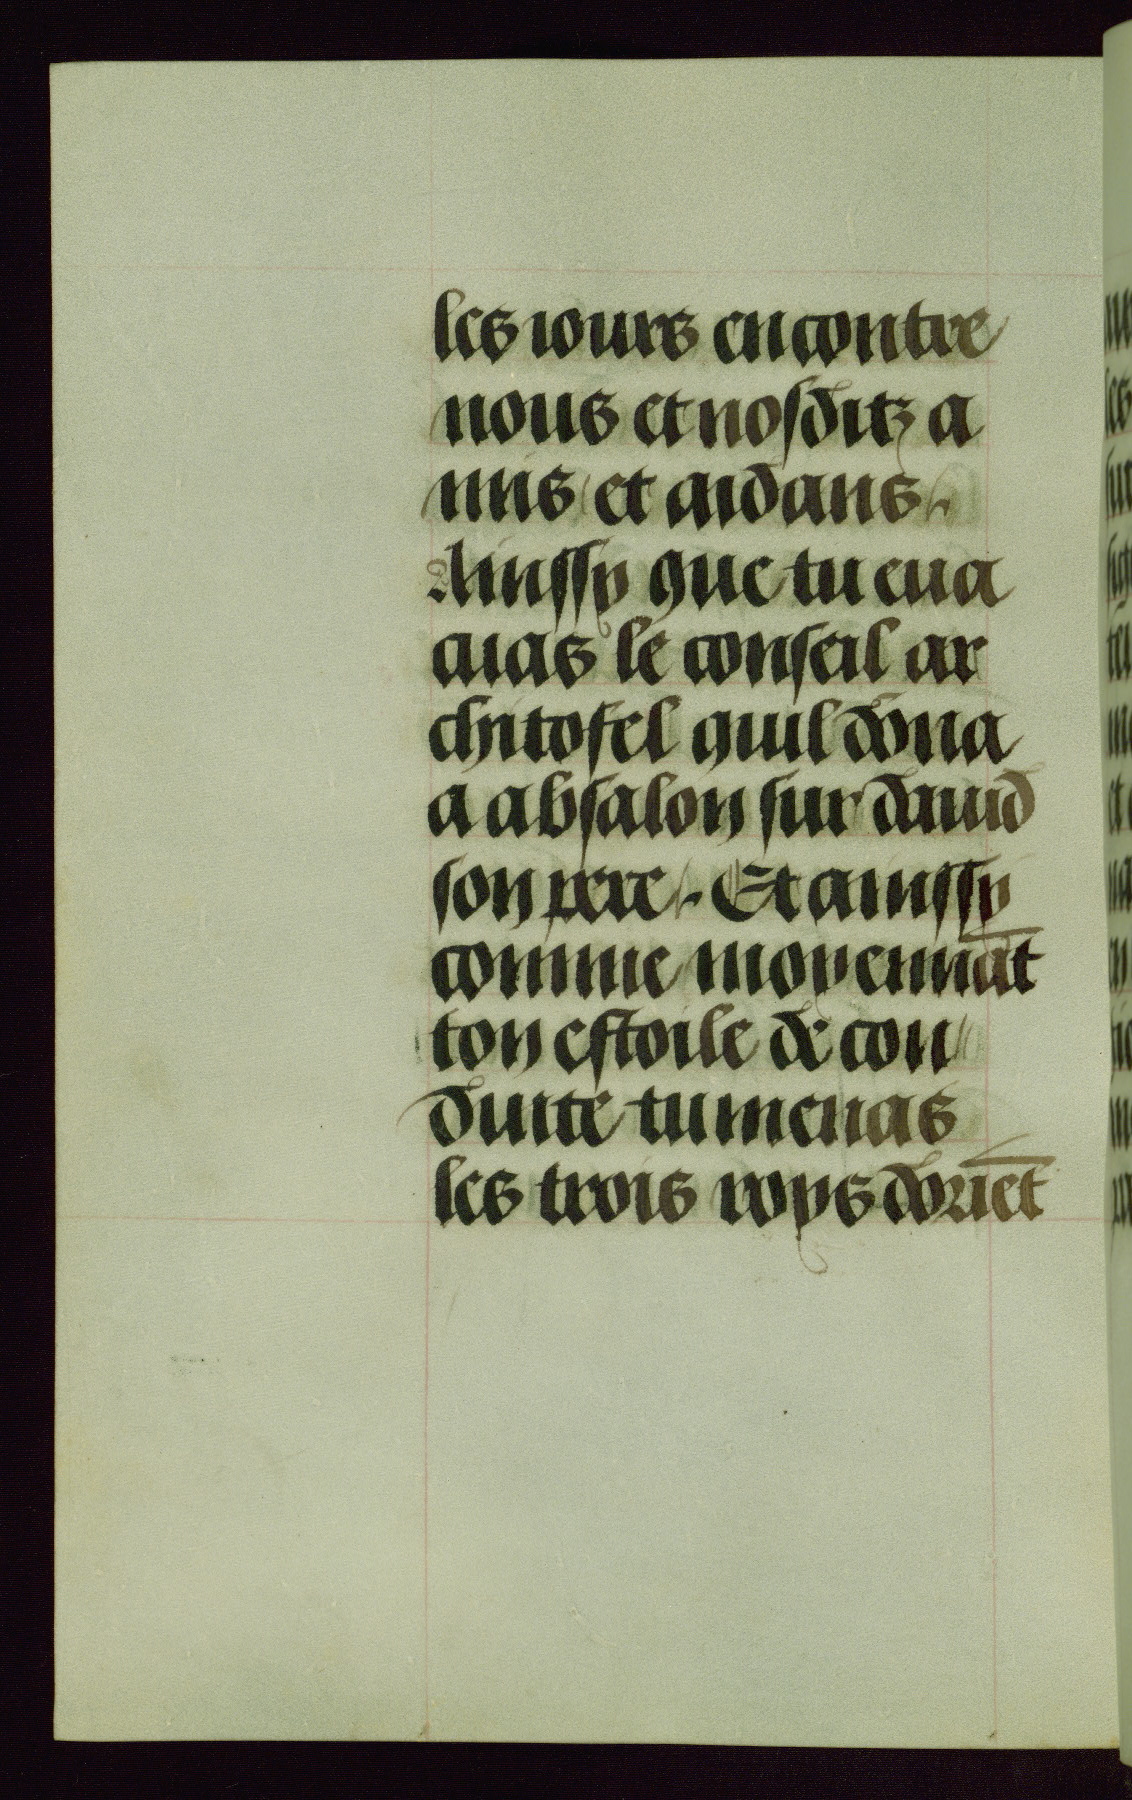 les iours encontre
nous et nosditz a
mis et aidans.
Ainssy que tu eua
cuas le conseil ar
chitofel quil dona
a absalon sur dauid
son pere. Et ainssy
comme moyennāt
ton estoile de con
duite tu menas
les trois roys doriēt